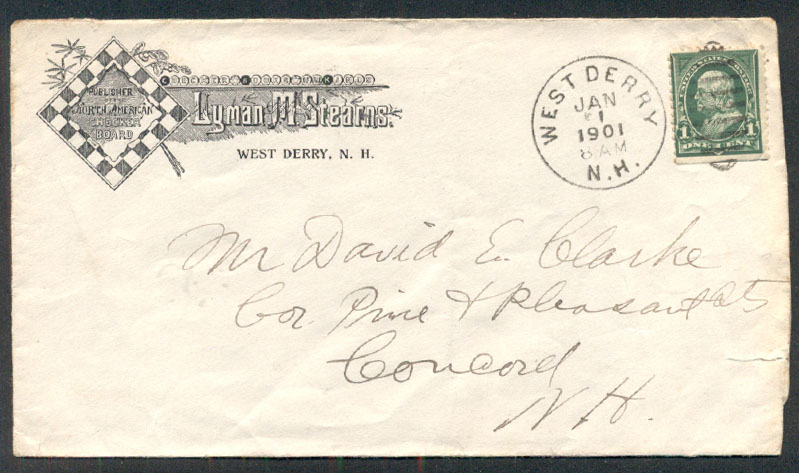 PUBLISHER
NORTH AMERICAN
CHECKER
BOARD
Lyman M. Stearns.
WEST DERRY, N. H.
WEST DERRY
JAN
1
1901
8 AM
N.H.
1 1
ONE CENT
Mr David E. Clarke
Cor. Pine & Pleasant Sts
Concord
N.H.